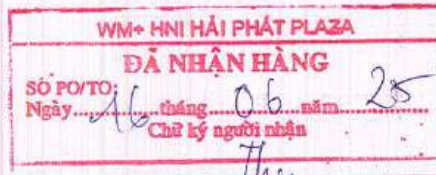 WM+ HNI HẢI PHÁT PLAZA
ĐÃ NHẬN HÀNG
SỐ PO/TO:
Ngày 16 tháng 06 năm 25
Chữ ký người nhận